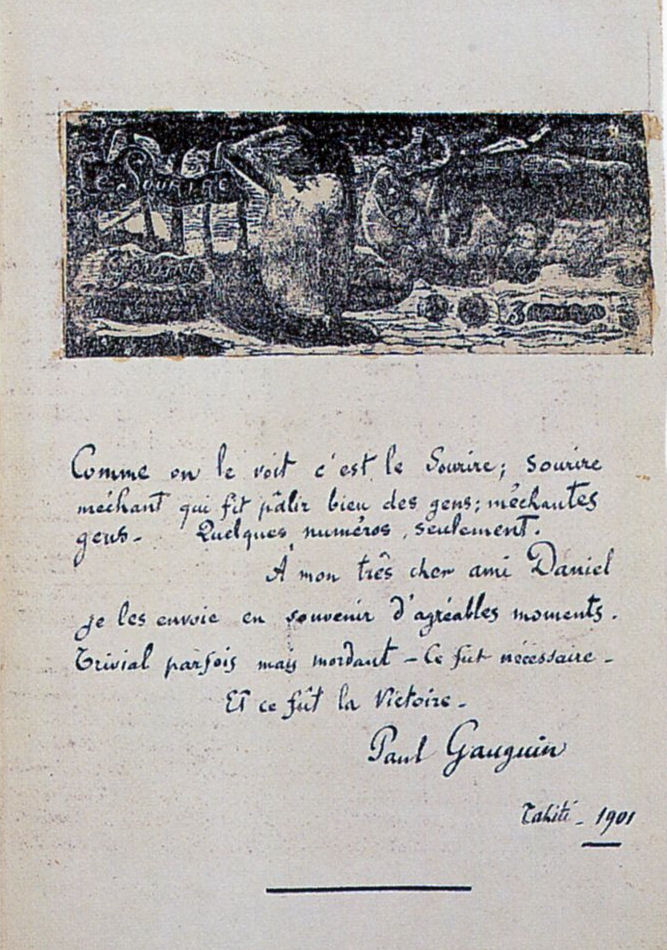 LE SOURIRE
Comme on le voit c'est le Sourire; sourire
méchant qui fit pâlir bien des gens; méchantes
gens. Quelques numéros, seulement.
A mon très cher ami Daniel
je les envoie en souvenir d'agréables moments.
Trivial parfois mais mordant - Ce fut nécessaire -
Et ce fût la Victoire -
Paul Gauguin
Tahiti - 1901